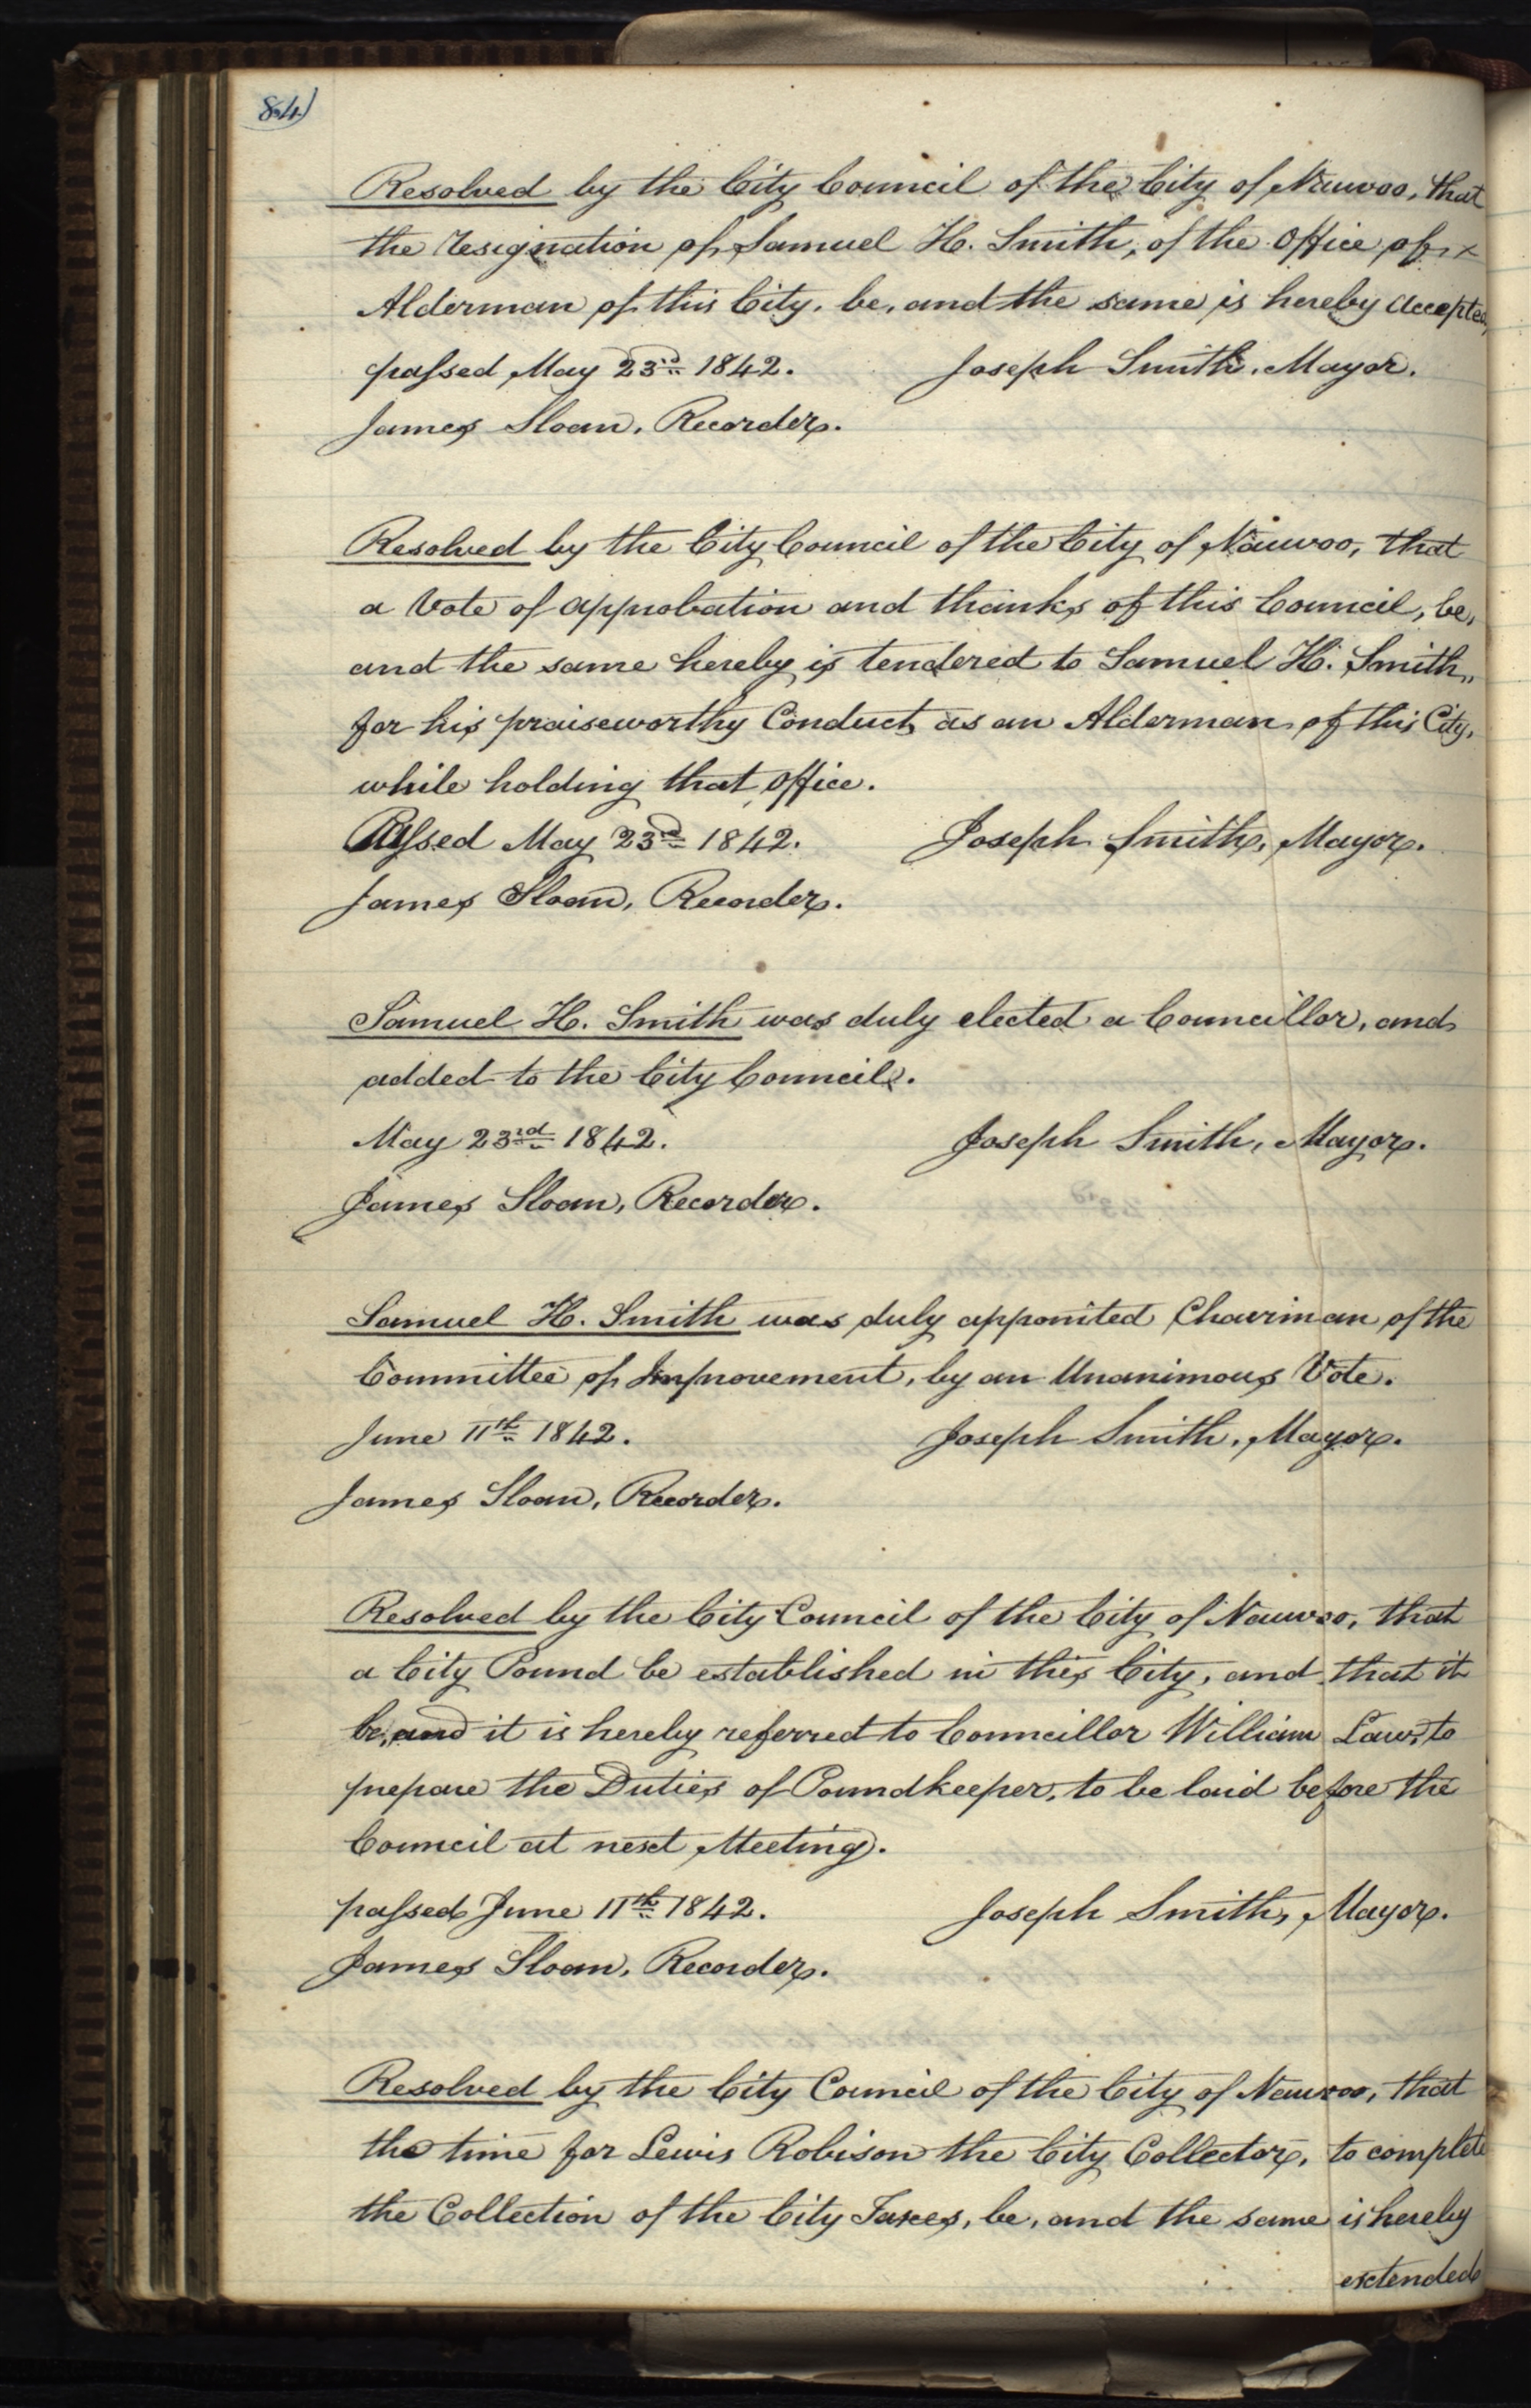 84)
Resolved by the City Council of the City of Nauvoo, that
the resignation of Samuel H. Smith, of the Office of
Alderman of this City, be, and the same is hereby accepted,
passed May 23rd 1842. Joseph Smith, Mayor.
James Sloan, Recorder.
Resolved by the City Council of the City of Nauvoo, that
a Vote of approbation and thanks of this Council, be,
and the same hereby is tendered to Samuel H. Smith,
for his praiseworthy Conduct as an Alderman of this City,
while holding that office.
Passed May 23rd 1842. Joseph Smith, Mayor.
James Sloan, Recorder.
Samuel H. Smith was duly elected a Councillor, and
added to the City Council.
May 23rd 1842. Joseph Smith, Mayor.
James Sloan, Recorder.
Samuel H. Smith was duly appointed Chairman of the
Committee of Improvement, by an Unanimous Vote.
June 11th 1842. Joseph Smith, Mayor.
James Sloan, Recorder.
Resolved by the City Council of the City of Nauvoo, that
a City Pound be established in this City, and that it
be, and it is hereby referred to Councillor William Law, to
prepare the Duties of Poundkeeper, to be laid before the
Council at next Meeting.
passed June 11th 1842. Joseph Smith, Mayor.
James Sloan, Recorder.
Resolved by the City Council of the City of Nauvoo, that
the time for Lewis Robison the City Collector, to complete
the Collection of the City Taxes, be, and the same is hereby
extended